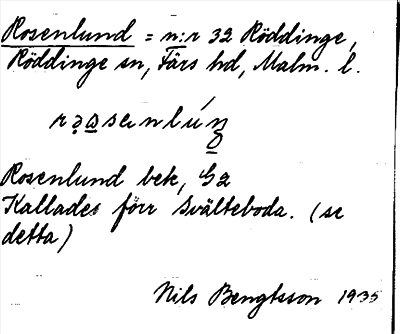 Rosenlund = n:r 32 Röddinge,
Röddinge sn, Färs hd, Malm. l.
Rosenlund bek, G2
Kallades förr Svälteboda. (se
detta)
Nils Bengtsson 1935